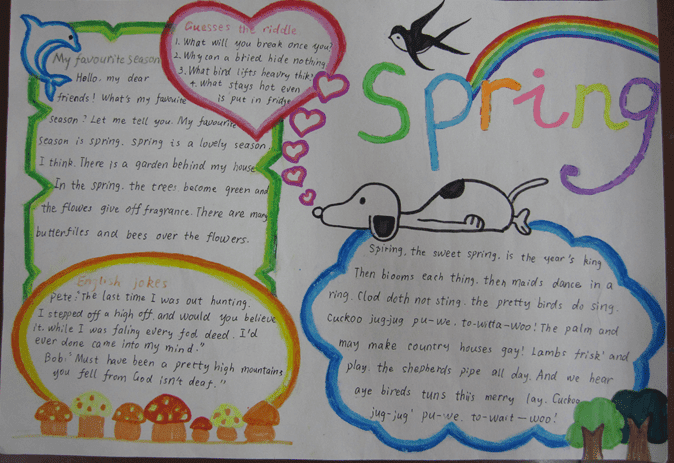 My favourite season
Hello, my dear
friends! What's my favouite
season? Let me tell you. My favourite
season is spring. Spring is a lovely season,
I think. There is a garden behind my house
In the spring. the trees become green and
the flowes give off fragrance. There are many
butterfiles and bees over the flowers.
Guesses the riddle
1. What will you break once you?
2. Why can a bried hide nothing
3. What bird lifts heavry thik?
4. What stays hot even
is put in fridge
Spring
English jokes
Pete: "The last time I was out hunting.
I stepped off a high off. and would you believe
it. while I was faling every fod deed. I'd
ever done came into my mind."
Bob: 'Must have been a pretty high mountains
you fell from God isn't deaf."
Spiring, the sweet spring. is the year's king
Then blooms each thing. then maids dance in a
ring. Clod doth not sting. the pretty birds do sing.
Cuckoo jug-jug pu-we. to-witta-woo! The palm and
may make country houses gay! Lambs frisk' and
play. the shepherds pipe all day. And we hear
aye bireds tuns this merry lay. Cuckoo
jug-jug' pu-we. to-wait-woo!